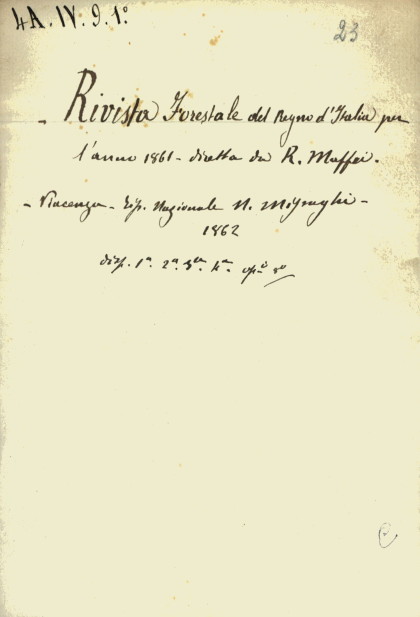 4A. IV. 9. 1º
23
- Rivista Forestale del Regno d'Italia per
l'anno 1861 - diretta da R. Maffei.
- Piacenza - Tip. Nazionale N. -
1862
disp. 1ª. 2ª. 3ª. 4ª. 8º